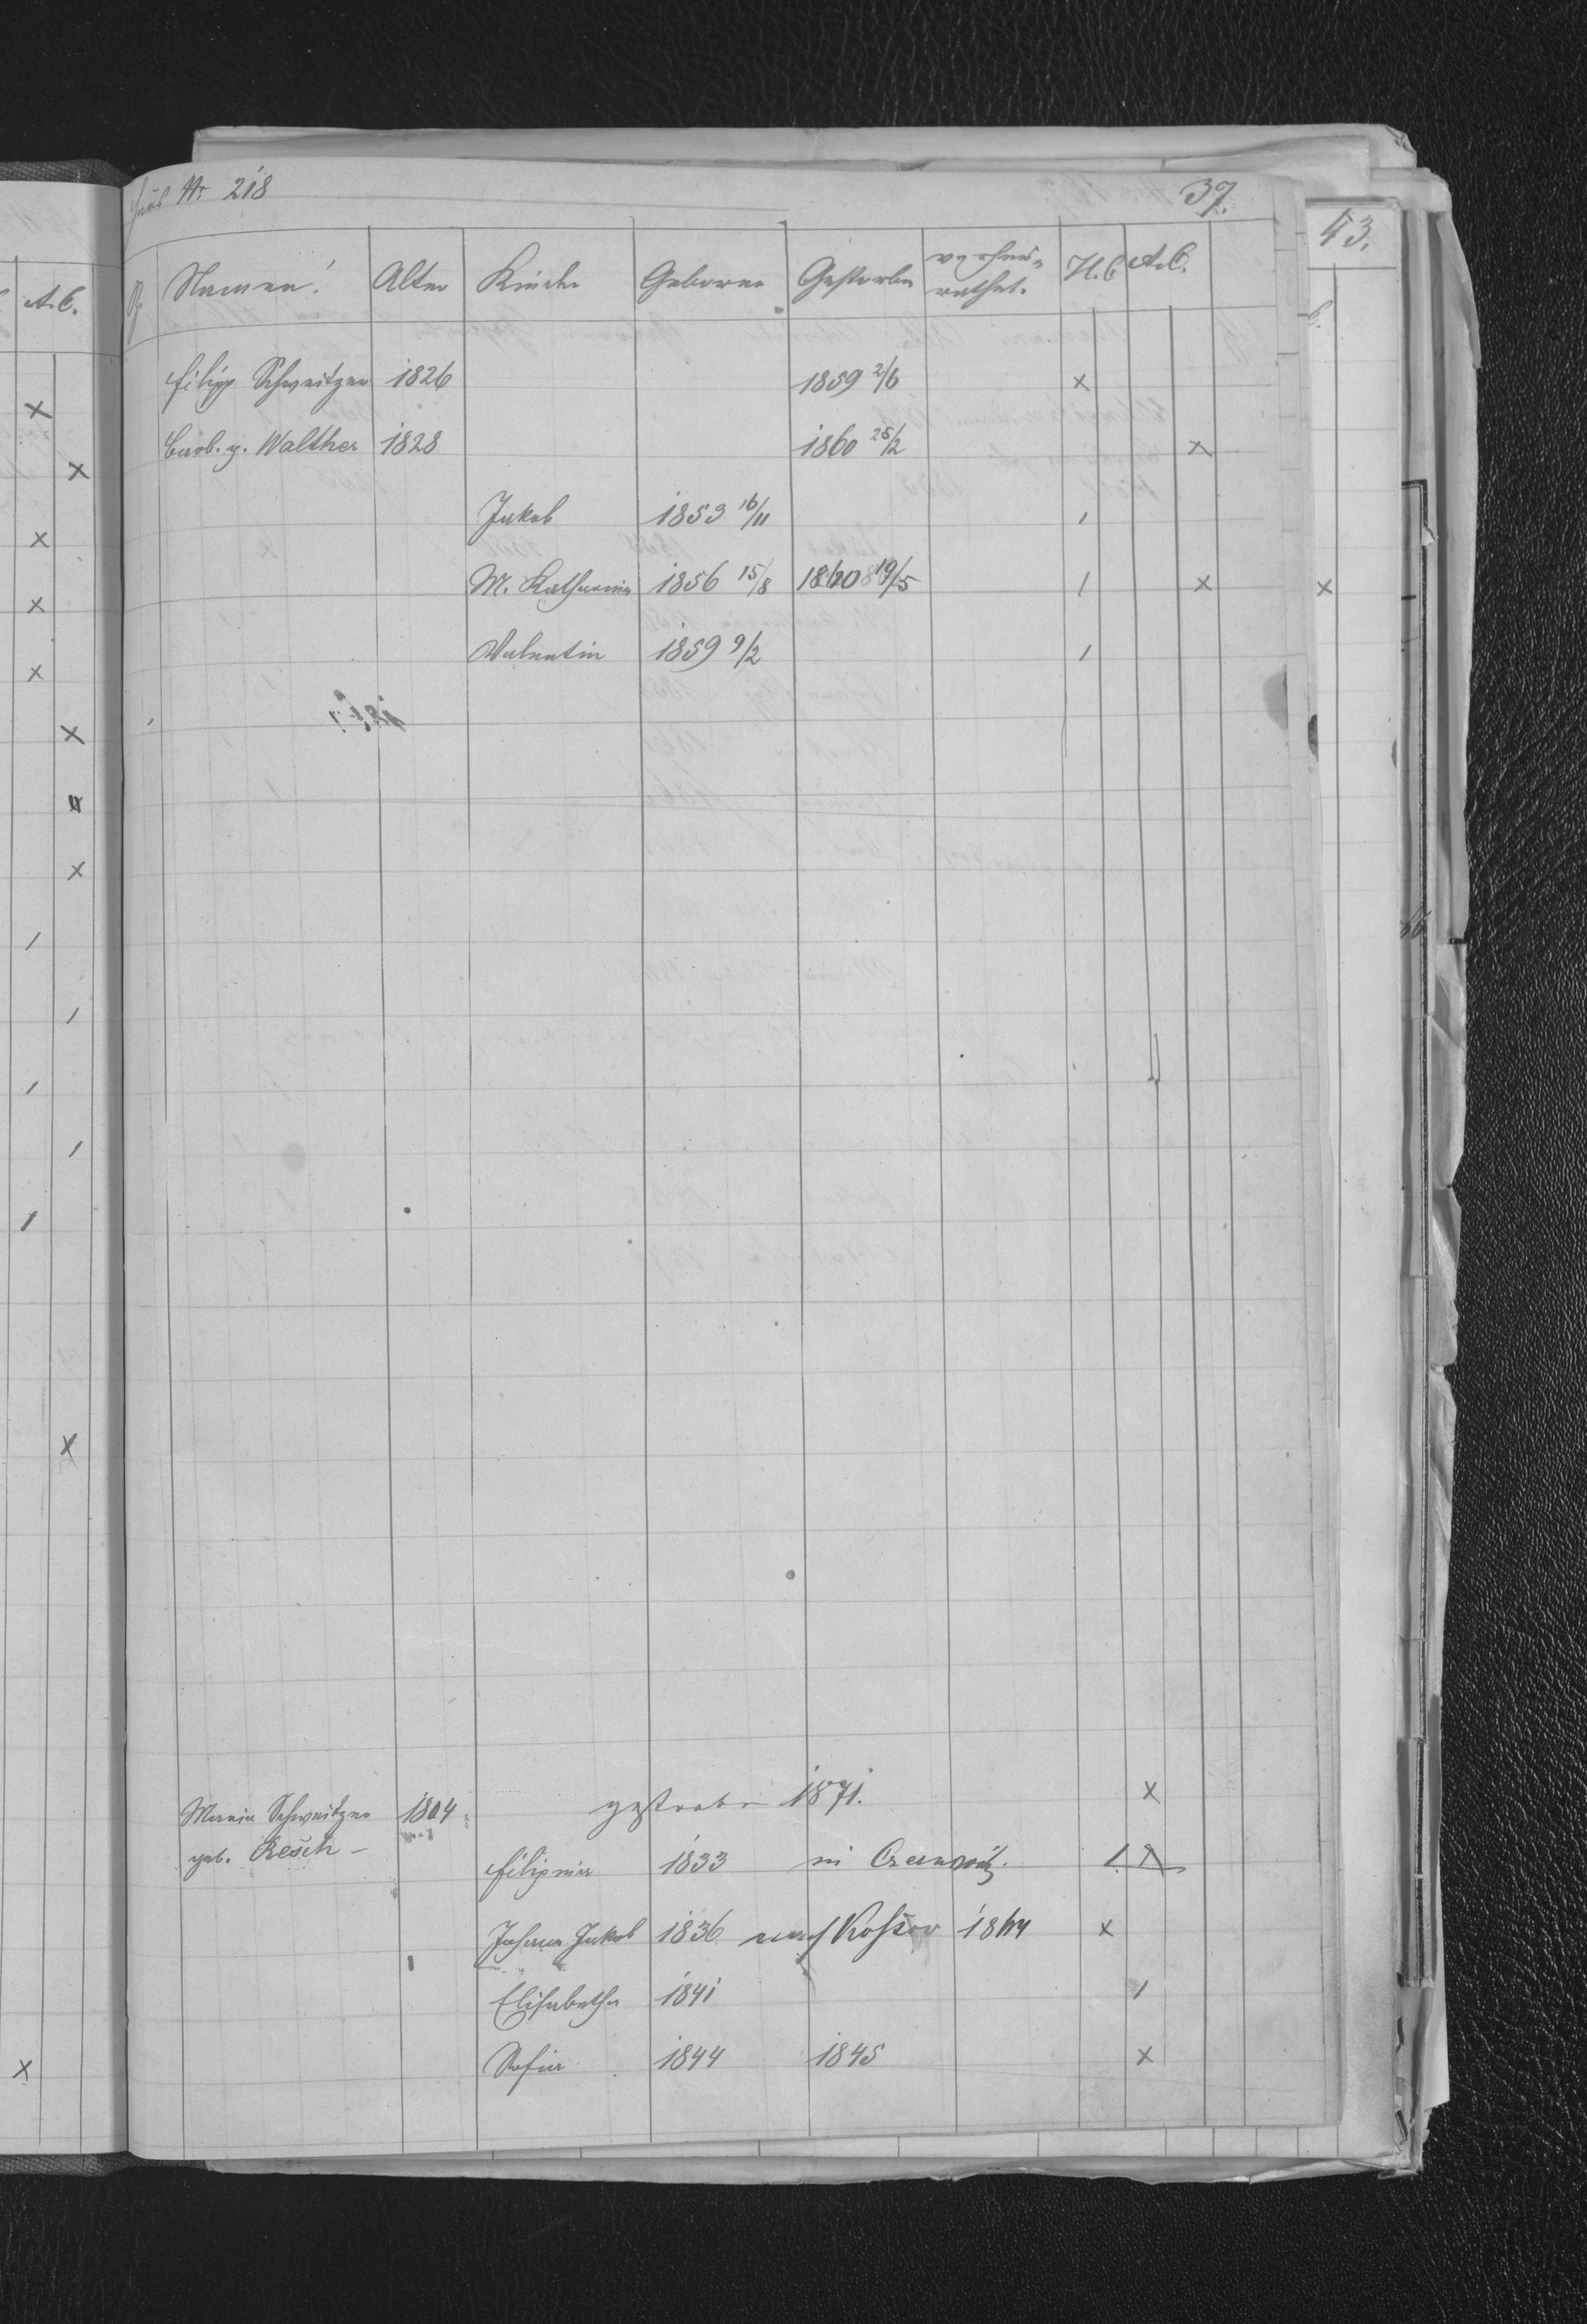 Haus Nr 218
37.
43.
A.C.
Namen! Alter Kinder Geboren Gestorben verheu=
rathet. H.C A.C.
Filipp Schweitzer 1826 1859 2/6 x
Barb. g. Walther 1828 1860 25/2 x
Jakob 1853 16/11 1
M. Katharina 1856 15/8 1860 19/5 1 x x
Valentin 1859 9/2 1
Maria Schweitzer 1804 gestorben 1871. x
geb. Resch -
Filipina 1833 in Czernowitz.
Johann Jakob 1836 nach Kossow 1864 x
Elisabetha 1841 1
Sofia 1844 1845 x